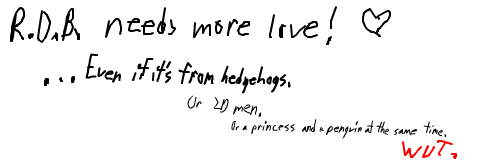 R.D.B. needs more love! ♡
...Even if it's from hedgehogs.
Or 2D men.
Or a princess and a penguin at the same time.
WUT.